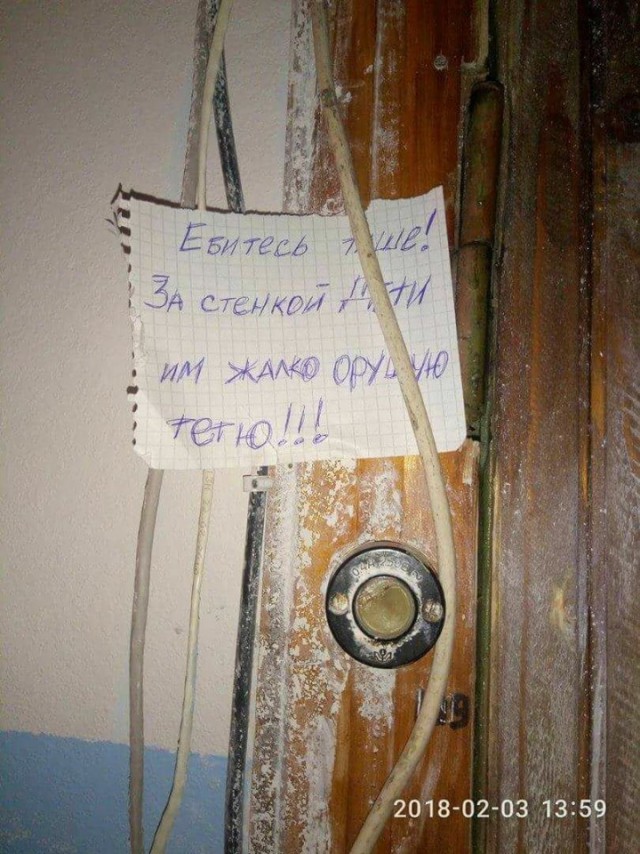 Ебитесь тише!
За стенкой дети
им жалко орущую
тётю!!!
2018-02-03 13:59